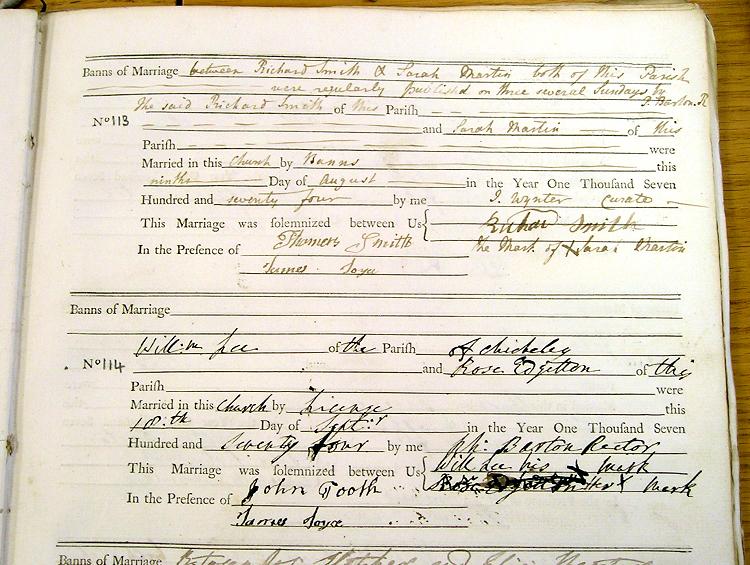 Banns of Marriage between Richard Smith & Sarah Martin both of this Parish
were regularly published on three several Sundays by
P. Barton R
The said Richard Smith of this Parish
No 113 and Sarah Martin of this
Parish were
Married in this Church by Banns this
ninth Day of August in the Year One Thousand Seven
Hundred and seventy four by me J. Wynter Curate
This Marriage was solemnized between Us Richard Smith
In the Presence of Thomas Smith the Mark of X Sarah Martin
James Joyce
Banns of Marriage
Will:m Lee of the Parish of Chicheley
No 114 and Rose Edgetton of this
Parish were
Married in this Church by License this
18:th Day of Sept:r in the Year One Thousand Seven
Hundred and seventy four by me Barton Rector
This Marriage was solemnized between Us Will Lee his X Mark
In the Presence of John Tooth her X Mark
James Joyce
Banns of Marriage Between and